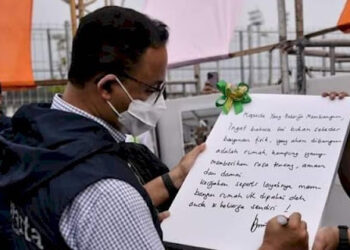 Kepada Yang Bekerja Membangun,
Ingat bahwa ini bukan sekedar
bangunan fisik, yang akan dibangun
adalah rumah, kampung yang
memberikan rasa tenang, aman
dan damai
Kerjakan seperti layaknya mem
bangun rumah utk dipakai oleh
anda & keluarga sendiri!